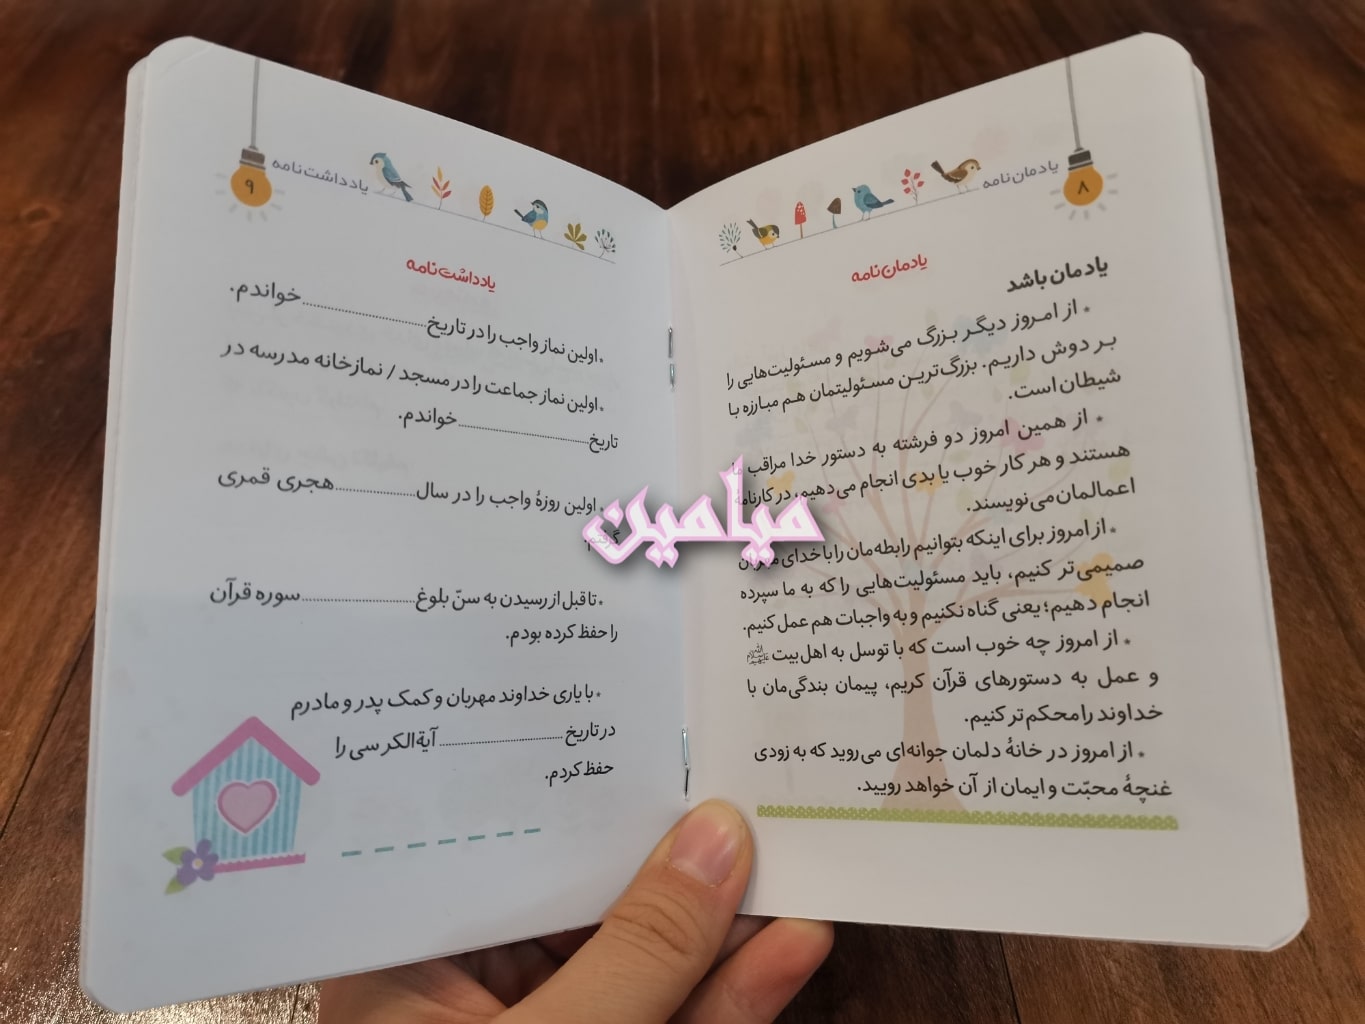 یادمان‌نامه
۸
یادمان‌نامه
یادمان باشد
* از امروز دیگر بزرگ می‌شویم و مسئولیت‌هایی را
بر دوش داریم. بزرگ‌ترین مسئولیتمان هم مبارزه با
شیطان است.
* از همین امروز دو فرشته به دستور خدا مراقب ما
هستند و هر کار خوب یا بدی انجام می‌دهیم، در کارنامهٔ
اعمالمان می‌نویسند.
* از امروز برای اینکه بتوانیم رابطه‌مان را با خدای مهربان
صمیمی‌تر کنیم، باید مسئولیت‌هایی را که به ما سپرده
انجام دهیم؛ یعنی گناه نکنیم و به واجبات هم عمل کنیم.
* از امروز چه خوب است که با توسل به اهل‌بیت
و عمل به دستورهای قرآن کریم، پیمان بندگی‌مان با
خداوند را محکم‌تر کنیم.
* از امروز در خانهٔ دلمان جوانه‌ای می‌روید که به زودی
غنچهٔ محبّت و ایمان از آن خواهد رویید.
یادداشت‌نامه
۹
یادداشت‌نامه
* اولین نماز واجب را در تاریخ .................... خواندم.
* اولین نماز جماعت را در مسجد / نمازخانه مدرسه در
تاریخ .................... خواندم.
* اولین روزهٔ واجب را در سال .................... هجری قمری
گرفتم.
* تا قبل از رسیدن به سنّ بلوغ .................... سوره قرآن
را حفظ کرده بودم.
* با یاری خداوند مهربان و کمک پدر و مادرم
در تاریخ .................... آیةالکرسی را
حفظ کردم.
میامین